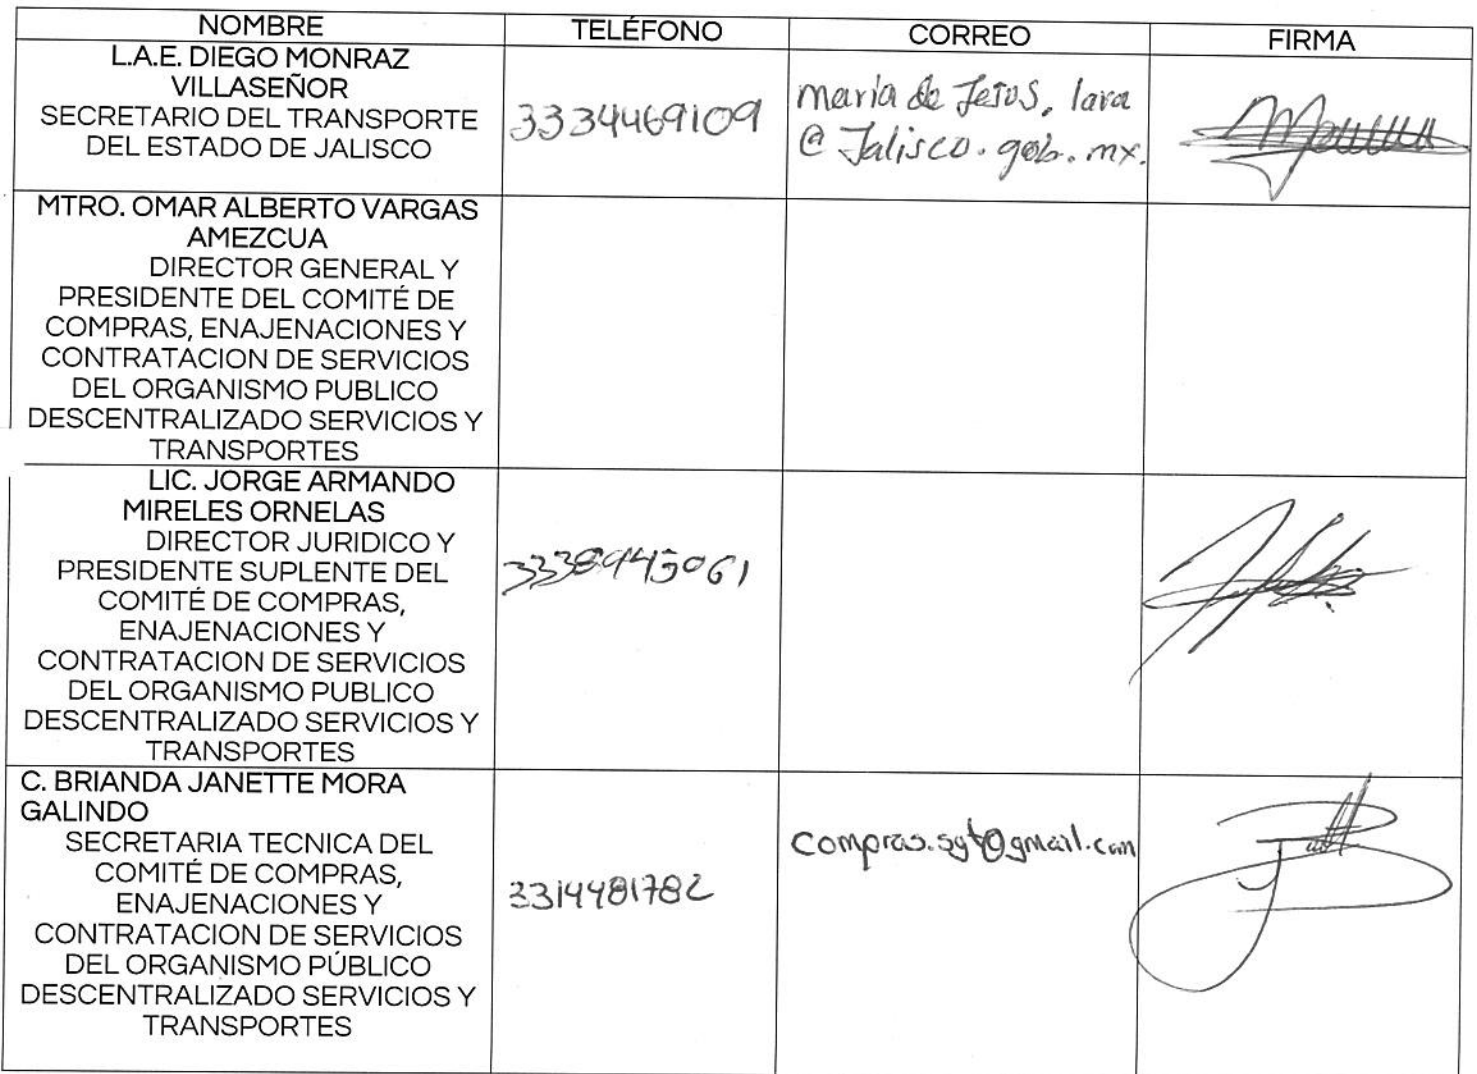 NOMBRE TELÉFONO CORREO FIRMA
L.A.E. DIEGO MONRAZ
VILLASEÑOR
SECRETARIO DEL TRANSPORTE
DEL ESTADO DE JALISCO
3334469109
maria de Jesus. lara
@ Jalisco.gob.mx.
MTRO. OMAR ALBERTO VARGAS
AMEZCUA
DIRECTOR GENERAL Y
PRESIDENTE DEL COMITÉ DE
COMPRAS, ENAJENACIONES Y
CONTRATACION DE SERVICIOS
DEL ORGANISMO PUBLICO
DESCENTRALIZADO SERVICIOS Y
TRANSPORTES
LIC. JORGE ARMANDO
MIRELES ORNELAS
DIRECTOR JURIDICO Y
PRESIDENTE SUPLENTE DEL
COMITÉ DE COMPRAS,
ENAJENACIONES Y
CONTRATACION DE SERVICIOS
DEL ORGANISMO PUBLICO
DESCENTRALIZADO SERVICIOS Y
TRANSPORTES
3338945061
C. BRIANDA JANETTE MORA
GALINDO
SECRETARIA TECNICA DEL
COMITÉ DE COMPRAS,
ENAJENACIONES Y
CONTRATACION DE SERVICIOS
DEL ORGANISMO PÚBLICO
DESCENTRALIZADO SERVICIOS Y
TRANSPORTES
3314481782
compras.syt@gmail.com